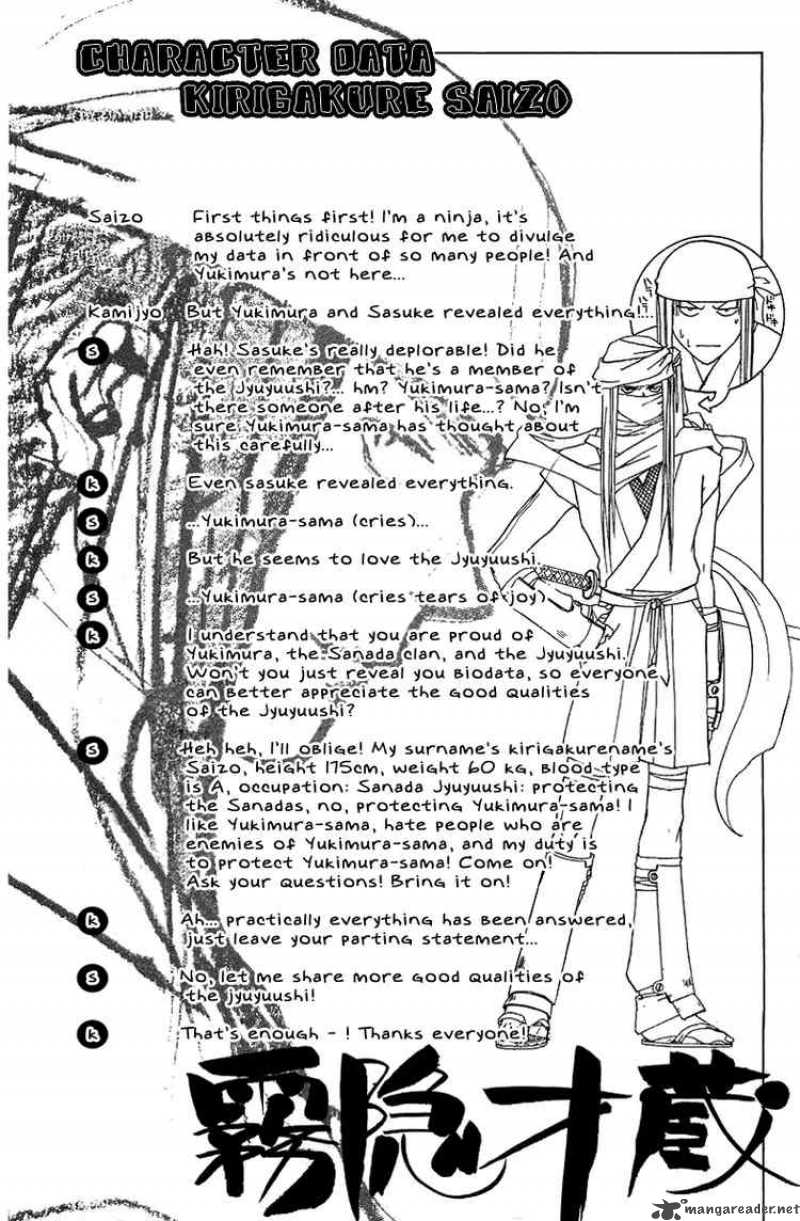 CHARACTER DATA
KIRIGAKURE SAIZO
Saizo First things first! I'm a ninja, it's
absolutely ridiculous for me to divulge
my data in front of so many people! And
Yukimura's not here...
Kamijyo But Yukimura and Sasuke revealed everything!...
S Hah! Sasuke's really deplorable! Did he
even remember that he's a member of
the Jyuyuushi?... hm? Yukimura-sama? Isn't
there someone after his life...? No, I'm
sure Yukimura-sama has thought about
this carefully...
K Even sasuke revealed everything.
S ...Yukimura-sama (cries)...
K But he seems to love the Jyuyuushi.
S ...Yukimura-sama (cries tears of joy)
K I understand that you are proud of
Yukimura, the Sanada clan, and the Jyuyuushi.
Won't you just reveal you biodata, so everyone
can better appreciate the good qualities
of the Jyuyuushi?
S Heh heh, I'll oblige! My surname's kirigakurename's
Saizo, height 175cm, weight 60 kg, blood type
is A, occupation: Sanada Jyuyuushi: protecting
the Sanadas, no, protecting Yukimura-sama! I
like Yukimura-sama, hate people who are
enemies of Yukimura-sama, and my duty is
to protect Yukimura-sama! Come on!
Ask your questions! Bring it on!
K Ah... practically everything has been answered,
just leave your parting statement...
S No, let me share more good qualities of
the jyuyuushi!
K That's enough - ! Thanks everyone!
霧隠才蔵
mangareader.net